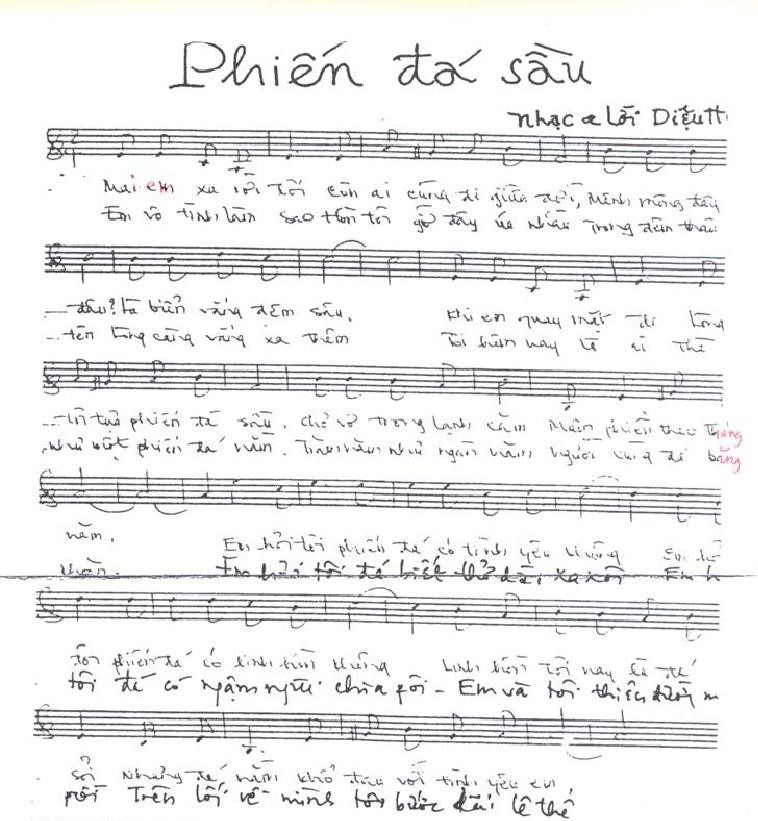 Phiến đá sầu
Nhạc & Lời Diệu
Mai em xa rồi tôi còn ai cũng đi giữa đời, Mênh mông đây
Em vô tình làm sao hồn tôi gỗ đây úa nhàu trong đêm thâu
đâu? là biển vắng đêm sâu. Khi em quay mặt đi lòng
tên lòng càng vắng xa thêm Tôi hôm nay là ai thế
tôi tựa phiến đá sầu. Chỉ vỡ trong lạnh căm Muộn phiền theo tháng
như một phiến đá nằm. Trăm năm như ngàn năm, người cũng đá bằng
năm. Em hỏi tôi phiến đá có tình yêu không Em hỏi
Em hỏi tôi đá biết thở dài xa xôi Em h
tôi phiến đá có linh hồn không Linh hồn tôi nay là đá
tôi đá có ngậm ngùi chia phôi - Em và tôi thiên đường m
sỏi Nhưng đá nằm khổ đau với tình yêu em
rồi Trên lối về mình tôi bước dài lê thê